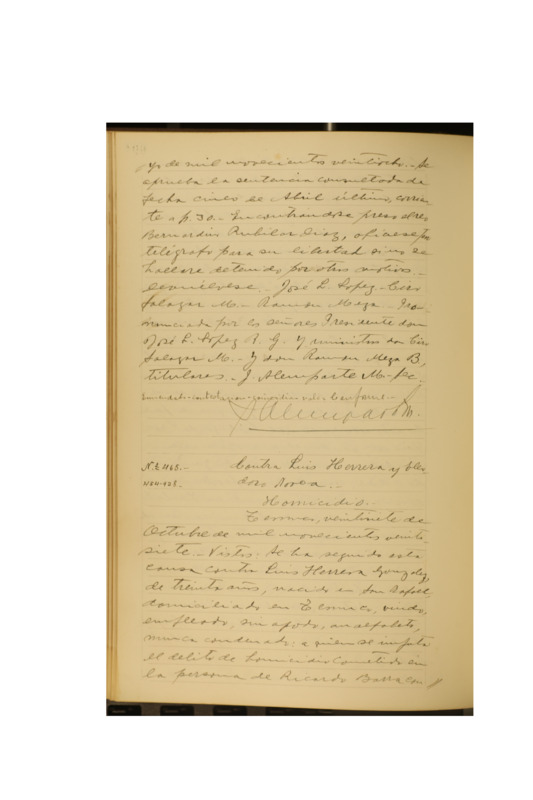 yo de mil novecientos veintiocho.- Se
aprueba la sentencia consultada de
fecha cinco de Abril último, corrien-
te a f. 30.- Encontrandose preso el reo
Bernardino Rubilar Diaz, ofíciese por
telégrafo para su libertad si no se
hallare detenido por otros motivos.-
Devuélvase.- José L. Lopez.- Ciro
Salazar M.- Ramon Meza.- Pro-
nunciada por los señores Presidente don
José L. Lopez R. G. y ministros don Ciro
Salazar M.- y don Ramon Meza B,
titulares.- J Alemparte M- Sec-
Conforme.-
J Alemparte M.
Contra Luis Herrera y
Homicidio.-
Temuco, veintisiete de
Octubre de mil novecientos veinti-
siete.- Vistos: Se ha seguido esta
causa contra Luis Herrera Gonzalez,
de treinta años, nacido en San Rafael,
domiciliado en Temuco, viudo,
empleado, sin apodo, analfabeto,
nunca condenado: a quien se imputa
el delito de homicidio cometido en
la persona de Ricardo